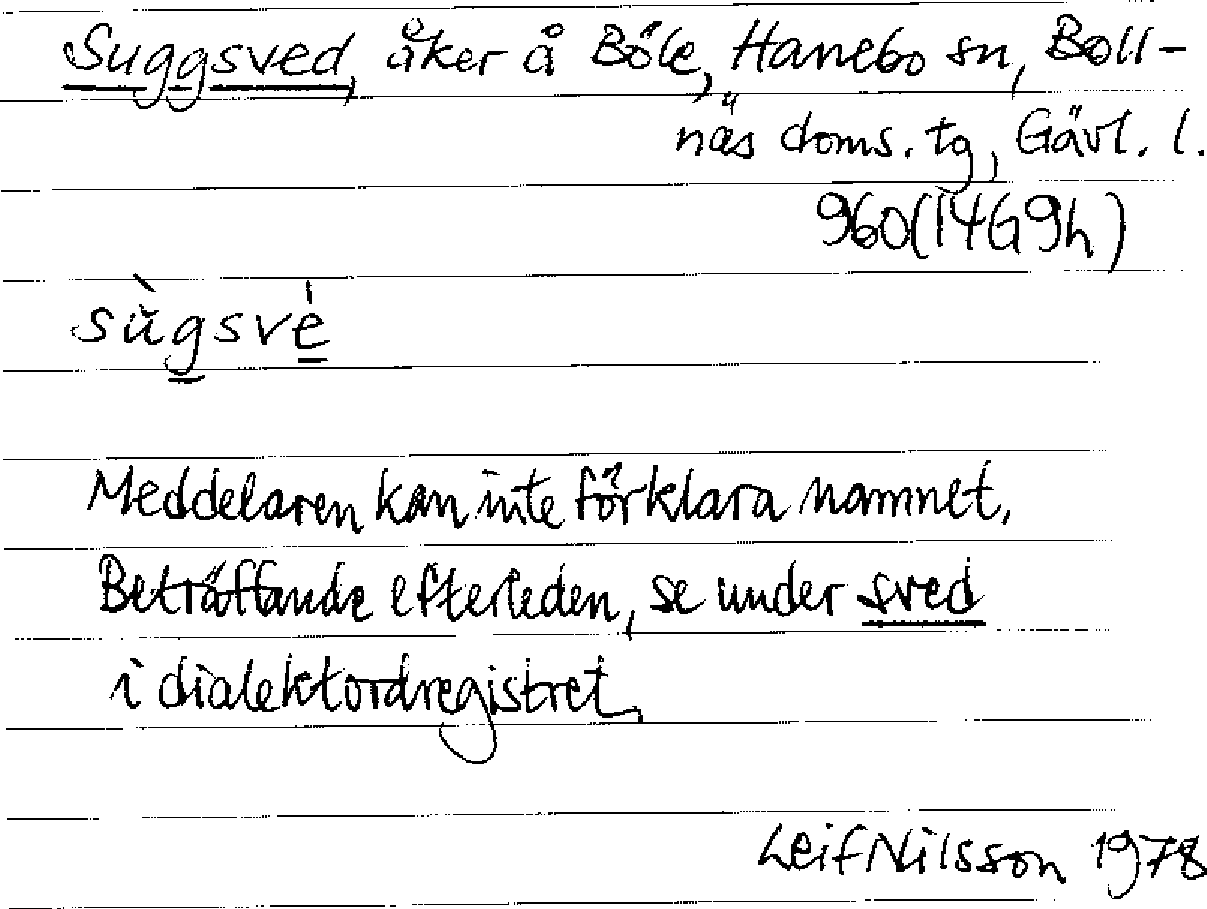 Suggsved, åker å Böle, Hanebo sn, Boll-
näs doms. tg, Gävl. l.
960(14G9h)
sùgsvé
Meddelaren kan inte förklara namnet.
Beträffande efterleden, se under sved
i dialektordregistret.
Leif Nilsson 1978